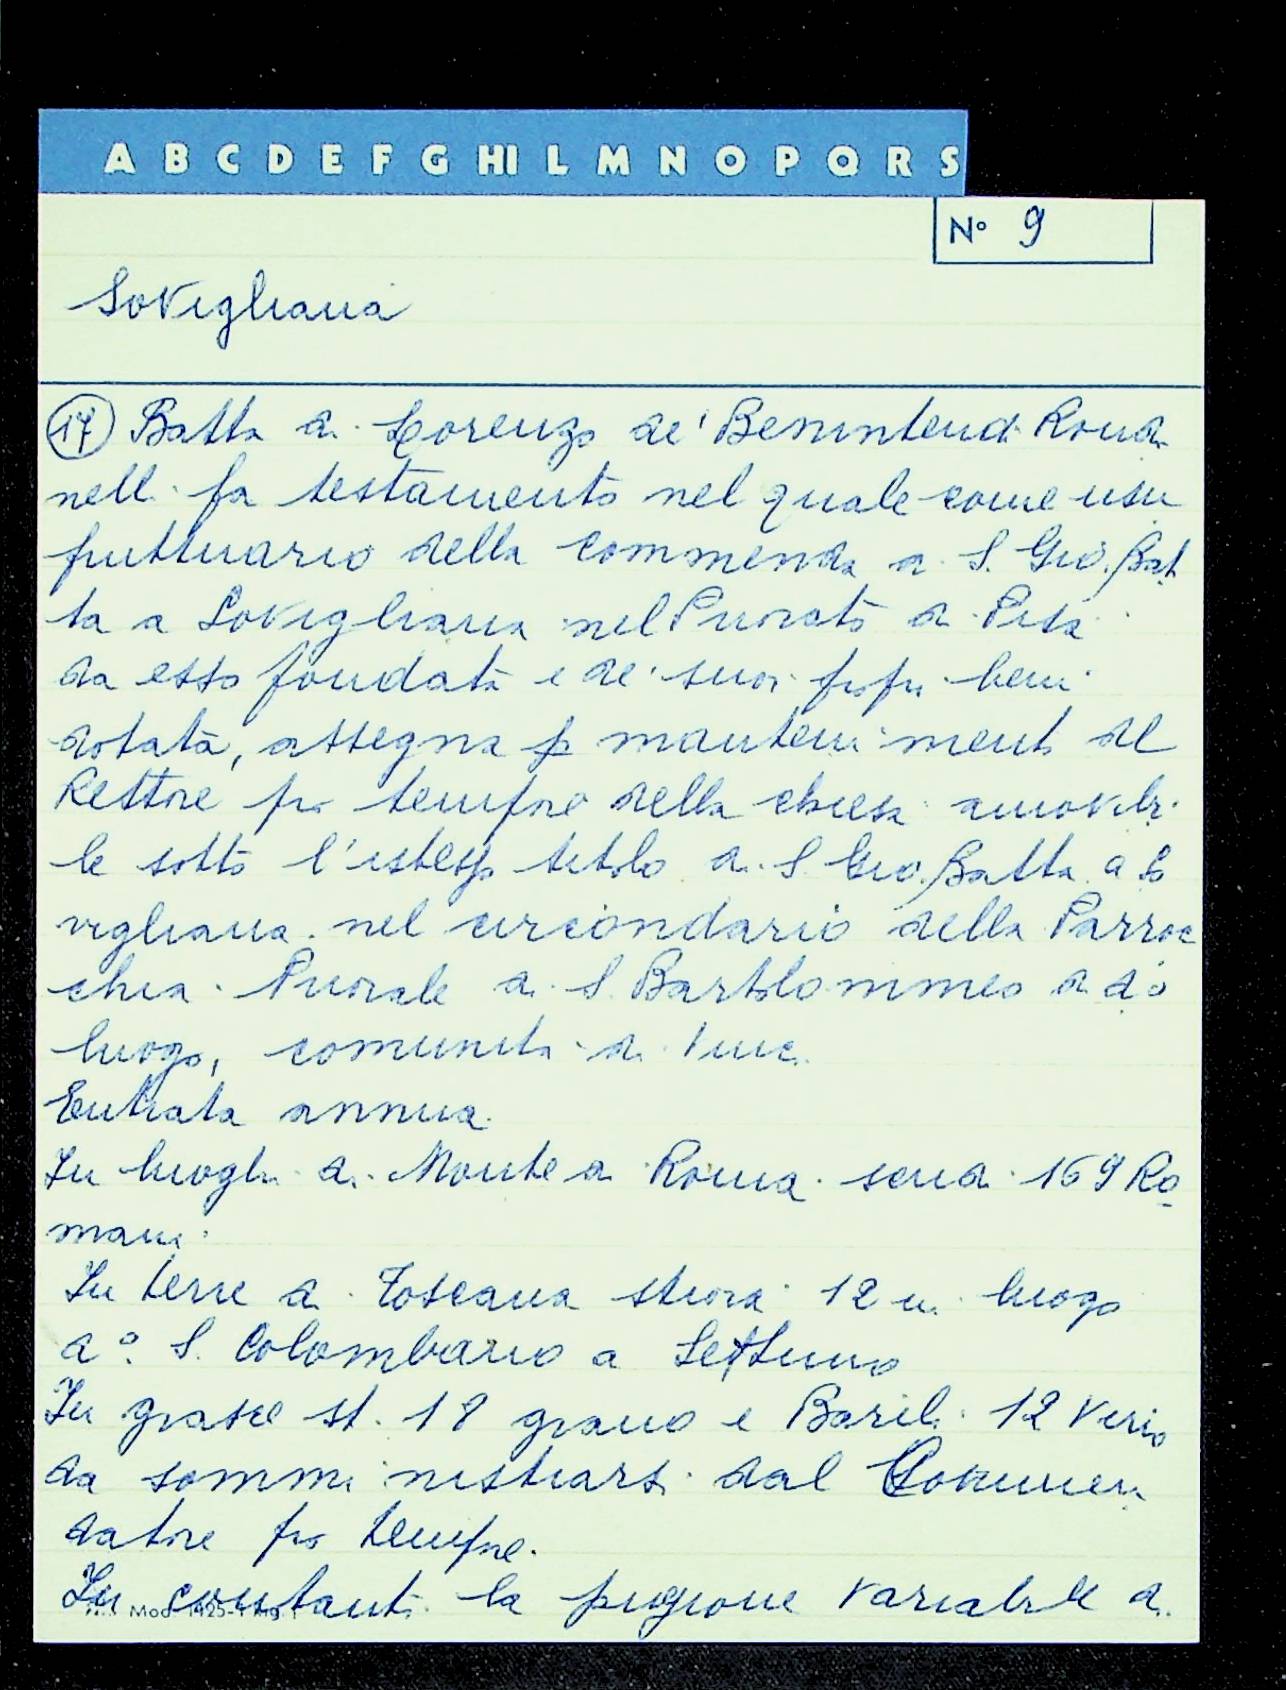 A B C D E F G HI L M N O P Q R S
N° 9
Sovigliana
17 Batta di Lorenzo de' Benintendi Rondi
nelli fa testamento nel quale come usu
fruttuario della commenda di S. Gio. Bat
ta a Sovigliana nel Priorato di Pisa
da esso fondata e de' suoi propri beni
dotata, assegna p mantenimento del
Rettore pro tempore della chiesa amovibi
le sotto l'istesso titolo di S. Gio. Batta a So
vigliana nel circondario della Parroc
chia Priorale di S. Bartolommeo di do
luogo, comunità di Vinci.
Entrata annua.
In luoghi di Monte di Roma scudi 169 Ro
mani
In terre di Toscana stiora 12 in luogo
do S. Colombano a Settimo
In grasce st. 18 grano e Barili 12 Vino
da somministrarsi dal Commen
datore pro tempore.
In contanti la pigione variabile di